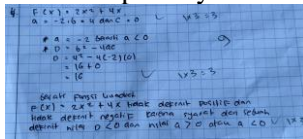 4. F(x) = 2x² + 4x
a = -2 , b = 4 dan c = 0 1x3 = 3
* a = -2 berarti a < 0
* D = b² - 4ac 9
D = 4² - 4(-2)(0)
= 16 + 0
= 16 1x3 = 3
F(x) = 2x² + 4x tidak definit positif dan
tidak definit negatif karena syarat dari sebuah
definit nilai D < 0 dan nilai a > 0 atau a < 0 1x3